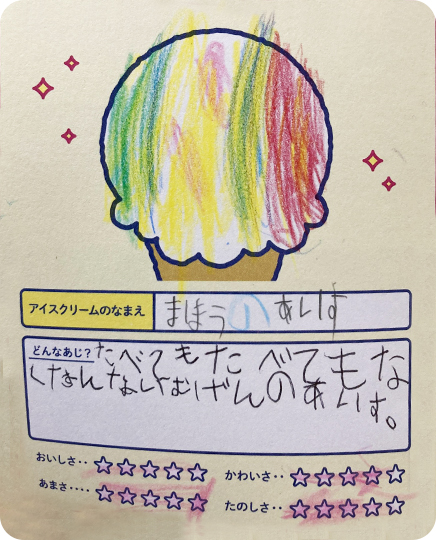 アイスクリームのなまえ
まほうのあいす
どんなあじ？
たべてもたべてもな
くなんないむげんのあいす。
おいしさ‥
かわいさ‥
あまさ‥‥
たのしさ‥